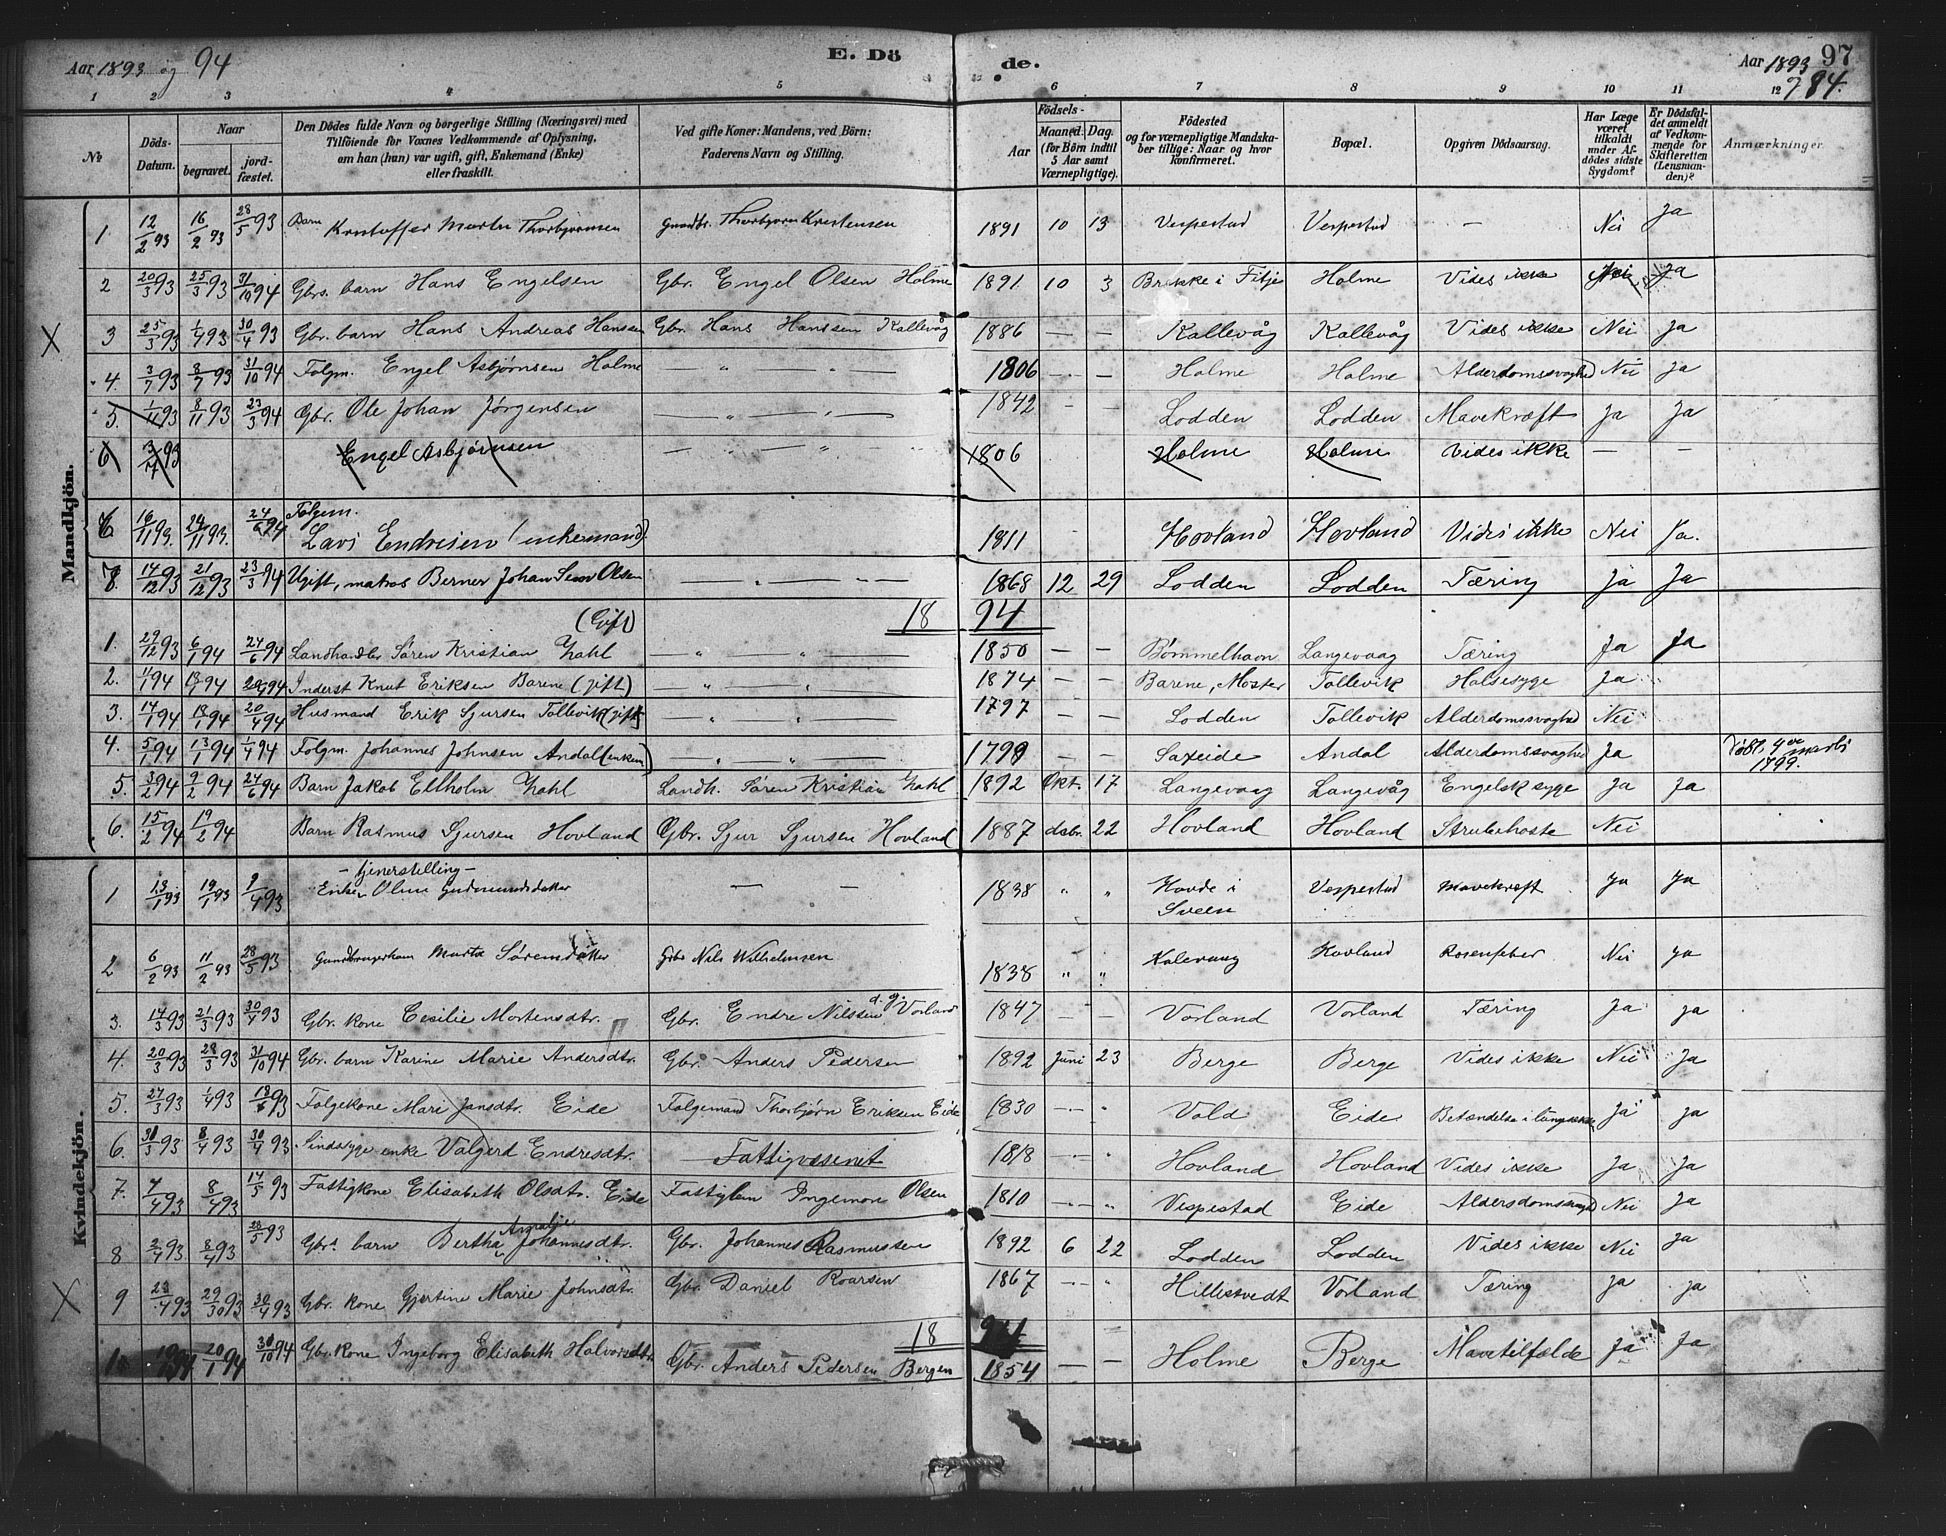 Aar 1893 og 94
E. Dö
de.
Aar 1893
97
94.
1 2 3 4 5 6 7 8 9 10 11 12
№
Döds-Datum.
Naar
begravet.
jord-fæstet.
Den Dödes fulde Navn og borgerlige Stilling (Næringsvei) med
Tilföiende for Voxnes Vedkommende af Oplysning,
om han (hun) var ugift, gift, Enkemand (Enke)
eller fraskilt.
Ved gifte Koner: Mandens, ved Börn:
Faderens Navn og Stilling.
Aar
Födsels-
Maaned. Dag.
(for Börn indtil
5 Aar samt
Værnepligtige).
Födested
og for værnepligtige Mandska-
ber tillige: Naar og hvor
konfirmeret.
Bopæl.
Opgiven Dödsaarsag.
Har Læge
været
tilkaldt
under Af-
dödes sidste
Sygdom?
Er Dödsfal-
det anmeldt
af Vedkom-
mende for
Skifteretten
(Lensman-
den)?
Anmærkninger.
Mandkjön.
1. 12/2 93 16/2 93 28/5 93 Barn Kristoffer Martin Thorbjørnsen Thorbjørn Kristensen 1891 10 13 Vespestad Vespestad — Nei Ja
2 20/3 93 25/3 93 31/10 94 Gbrs. barn Hans Engelsen Gbr. Engel Olsen Holme 1891 10 3 Brekke i Fitje Holme Vides ikke Nei Ja
3 25/3 93 1/4 93 30/4 93 Gbr. barn Hans Andreas Hanssen Gbr. Hans Hanssen Kallevåg 1886 — — Kallevåg Kallevåg Vides ikke Nei Ja
4. 3/7 93 8/7 93 31/10 94 Folgm. Engel Asbjørnsen Holme — " — " — 1806 — — Holme Holme Alderdomssvaghed Nei Ja
5. 1/11 93 8/11 93 23/3 94 Gbr. Ole Johan Jørgensen — " — " — 1842 Lodden Lodden Mavekræft Ja Ja
6 Engel Asbjørnsen — " — " 1806 Holme Holme Vides ikke — —
6 16/11 93. 24/11 93. 24/6 94 Folgem. Lars Endresen (enkemand) 1811 Hovland Hovland Vides ikke Nei Ja.
7 8. 14/12 93 21/12 93 23/3 94 Ugift, matros Berner Johan Olsen — " — — 1868 12 29 Lodden Lodden Tæring Ja Ja
18 94
1. 29/12 93 6/1 94 24/6 94 Landhandler Søren Kristian Zahl (Gift) — " — " — 1850 — — Bømmelhavn Langevaag Tæring Ja Ja
2. 4/1 94 13/1 94 Inderst Knut Eriksen Barene (gift) — " — " — 1874 — — Barene, Moster Tollevik Halsesyge Ja
3. 14/1 94 20/4 94 Husmand Erik Sjursen Tollevik (gift) — " — " — 1797 — — Lodden Tollevik Alderdomssvaghed Nei
4. 5/1 94 13/1 94 1/4 94 Folgm. Johannes Johnsen Andal (enkem) — " — " — 1799 Saxeide Andal Alderdomssvaghed Ja Døbt marts 1799.
5. 3/2 94 9/2 94 24/6 94 Barn Jakob Ellholm Zahl Landh. Søren Kristian Zahl 1892 Okt. 17 Langevaag Langevåg Engelsk syge Ja Ja
6. 15/2 94 19/2 94 Barn Rasmus Sjursen Hovland Gbr. Sjur Sjursen Hovland 1887 dsbr. 22 Hovland Hovland Strubehoste Nei
Kvindekjön.
1 13/1 93 19/1 93 9/4 93 – tjenerstilling – Enke Gudmundsdatter — — 1838 " " Hovde i Sveen Vespestad Mavekræft Ja Ja
2 6/2 93 11/2 93 28/5 93 Marta Sørensdatter Gbr Nils Wilhelmsen 1838 " " Kalevaag Hovland Rosenfeber Nei Ja
3. 14/3 93 21/3 93 30/4 93 Gbr. kone Cecilie Mortensdtr. Gbr. Endre Nilssen d. y. Vorland 1847 — — Vorland Vorland Tæring Ja Ja
4. 20/3 93 28/3 93 31/10 94 Gbr. barn Karine Marie Andersdtr. Gbr. Anders Pedersen 1892 Juni 23 Berge Berge Vides ikke Nei Ja
5. 27/3 93 1/4 93 18/6 93 Folgekone Mari Jansdtr. Eide Folgemand Thorbjørn Eriksen Eide 1830 — " Vold Eide Betændelse i Ja Ja
6. 31/3 93 8/4 93 30/4 93 Sindssyge enke Valgerd Endresdtr. Fattigvæsenet 1818 " Hovland Hovland Vides ikke Ja Ja
7. 7/4 93 8/4 93 14/5 93 Fattigkone Elisabeth Olsdtr. Eide Fattiglem Ingemon Olsen 1810 — " Vespestad Eide Aldersdomssvaghed Nei Ja
8 2/4 93 8/4 93 28/5 93 Gbrs barn Bertha Amalie Johannesdtr. Gbr. Johannes Rasmussen 1892 6 22 Lodden Lodden Vides ikke Nei Ja
9 23/4 93 30/4 93 Gbr. kone Gjertine Marie Johnsdtr. Gbr. Daniel Roarsen 1867 — " Hillestvedt Vorland Tæring Ja Ja
18 94
20/1 94 31/10 94 Gbr. kone Ingeborg Elisabeth Halvorsdtr. Gbr. Anders Pedersen Bergen 1854 — — Holme Berge Mavetilfælde Ja Ja